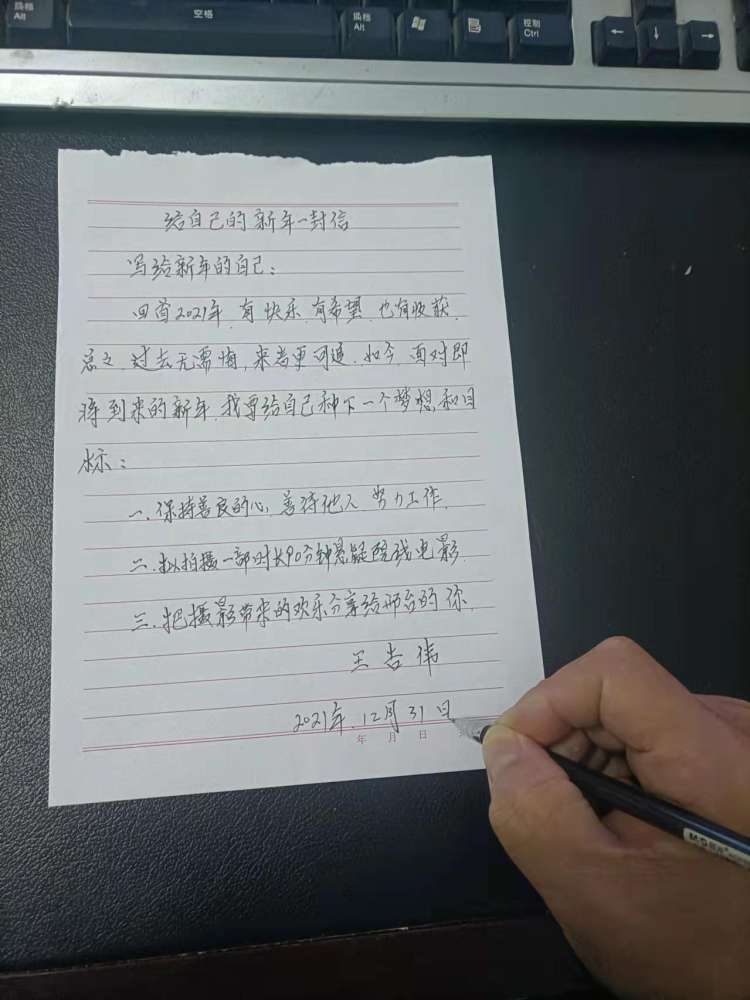 换档
Alt
空格
换档
Alt
控制
Ctrl
← ↓ →
给自己的新年一封信
写给新年的自己:
回首2021年,有快乐,有希望,也有收获,
总之,过去无需悔,来者更可追,如今,面对即
将到来的新年,我要给自己种下一个梦想和目
标:
一、保持善良的心,善待他人,努力工作,
二、拟拍摄一部时长90分钟悬疑院线电影,
三、把摄影带来的欢乐分享给邢台的你,
王吉伟
2021年,12月31日
年 月 日
M&G